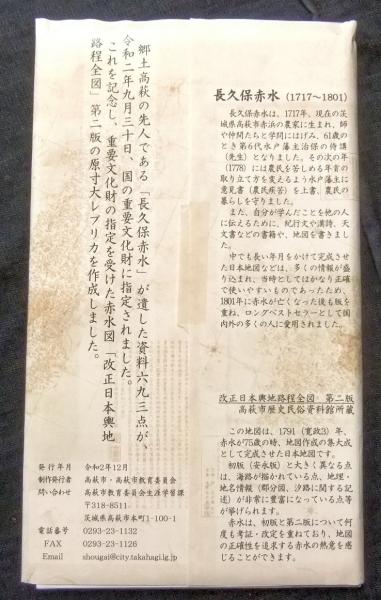 郷土高萩の先人である「長久保赤水」が遺した資料六九三点が、
令和二年九月三十日、国の重要文化財に指定されました。
これを記念し、重要文化財の指定を受けた赤水図「改正日本輿地
路程全図」第二版の原寸大レプリカを作成しました。
長久保赤水 (1717~1801)
長久保赤水は、1717年、現在の茨
城県高萩市赤浜の農家に生まれ、師
や仲間たちと学問にはげみ、61歳の
とき第6代水戸藩主治保の侍講
(先生)となりました。その次の年
(1778)には農民を苦しめる年貢の
取り立て方を変えるよう水戸藩主に
意見書(農民疾苦)を上書、農民の
暮らしを守りました。
また、自分が学んだことを他の人
に伝えるために、紀行文や漢詩、天
文書などの書籍や、地図を書きまし
た。
中でも長い年月をかけて完成させ
た日本地図などは、多くの情報が盛
り込まれ、当時としてはかなり正確
で使いやすいものであったため、
1801年に赤水が亡くなった後も版を
重ね、ロングベストセラーとして国
内外の多くの人に愛用されました。
改正日本輿地路程全図 第二版
高萩市歴史民俗資料館所蔵
この地図は、1791(寛政3)年、
赤水が75歳の時、地図作成の集大成
として完成させた日本地図です。
初版(安永版)と大きく異なる点
は、海路が描かれている点、地理・
地名情報(郡分図、汐路に関する記
述)が非常に豊富になっている点等
が挙げられます。
赤水は、初版と第二版について何
度も考証・改定を重ねており、地図
の正確性を追求する赤水の熱意を感
じることができます。
発行年月 令和2年12月
制作発行者 高萩市・高萩市教育委員会
問い合わせ 高萩市教育委員会生涯学習課
〒318-8511
茨城県高萩市本町1-100-1
電話番号 0293-23-1132
FAX 0293-23-1126
Email shougai@city.takahagi.lg.jp